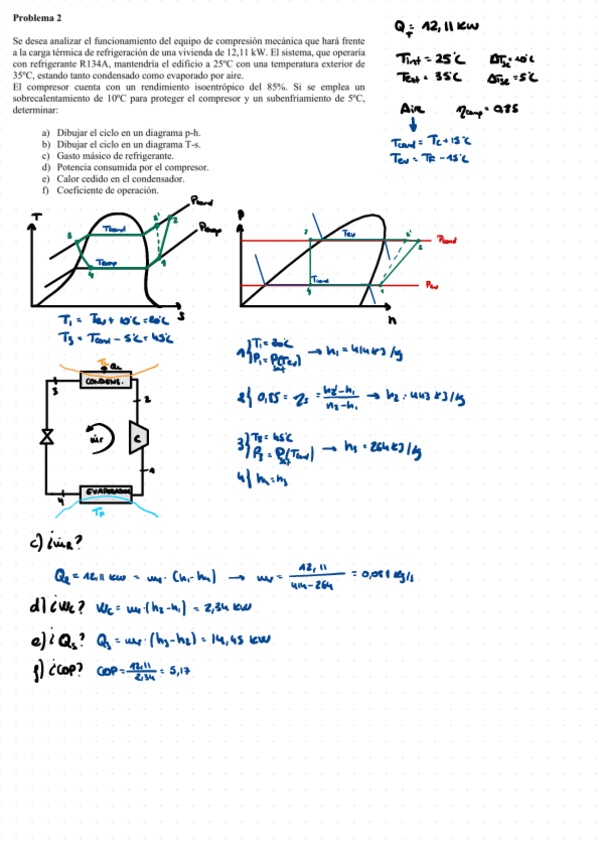 Problema 2
Se desea analizar el funcionamiento del equipo de compresión mecánica que hará frente
a la carga térmica de refrigeración de una vivienda de 12,11 kW. El sistema, que operaría
con refrigerante R134A, mantendría el edificio a 25ºC con una temperatura exterior de
35ºC, estando tanto condensado como evaporado por aire.
El compresor cuenta con un rendimiento isoentrópico del 85%. Si se emplea un
sobrecalentamiento de 10ºC para proteger el compresor y un subenfriamiento de 5ºC,
determinar:
a) Dibujar el ciclo en un diagrama p-h.
b) Dibujar el ciclo en un diagrama T-s.
c) Gasto másico de refrigerante.
d) Potencia consumida por el compresor.
e) Calor cedido en el condensador.
f) Coeficiente de operación.
= 12,11 kW
Tint = 25°C
= 10°C
Text = 35°C
= 5°C
Aire
= 0,85
Tcond = Tc + 15°C
Tev = TF - 15°C
T
Pcond
Pevap
Tcond
Tevap
3
2'
2
4
1
S
P
Pcond
Pev
Tev
Tcond
3
2'
2
4
1
h
T1 = Tev + 10°C = 20°C
T3 = Tcond - 5°C = 45°C
1{ T1 = 20°C
P1 = Psat(Tev) → h1 = 414 kJ/kg
2{ 0,85 = ηs = h2'-h1 / h2-h1 → h2 = 443 kJ/kg
3{ T3 = 45°C
P3 = Psat(Tcond) → h3 = 264 kJ/kg
4{ h4 = h3
CONDENS.
3
2
C
1
4
EVAPORADOR
TF
c) ¿
= 12,11 kW =
12,11
414-264
= 0,081 kg/s
d) ¿Wc? Wc = (h2-h1) = 2,34 kW
e) ¿
(h3-h2) = 14,45 kW
f) ¿COP? COP = 12,11 / 2,34 = 5,17